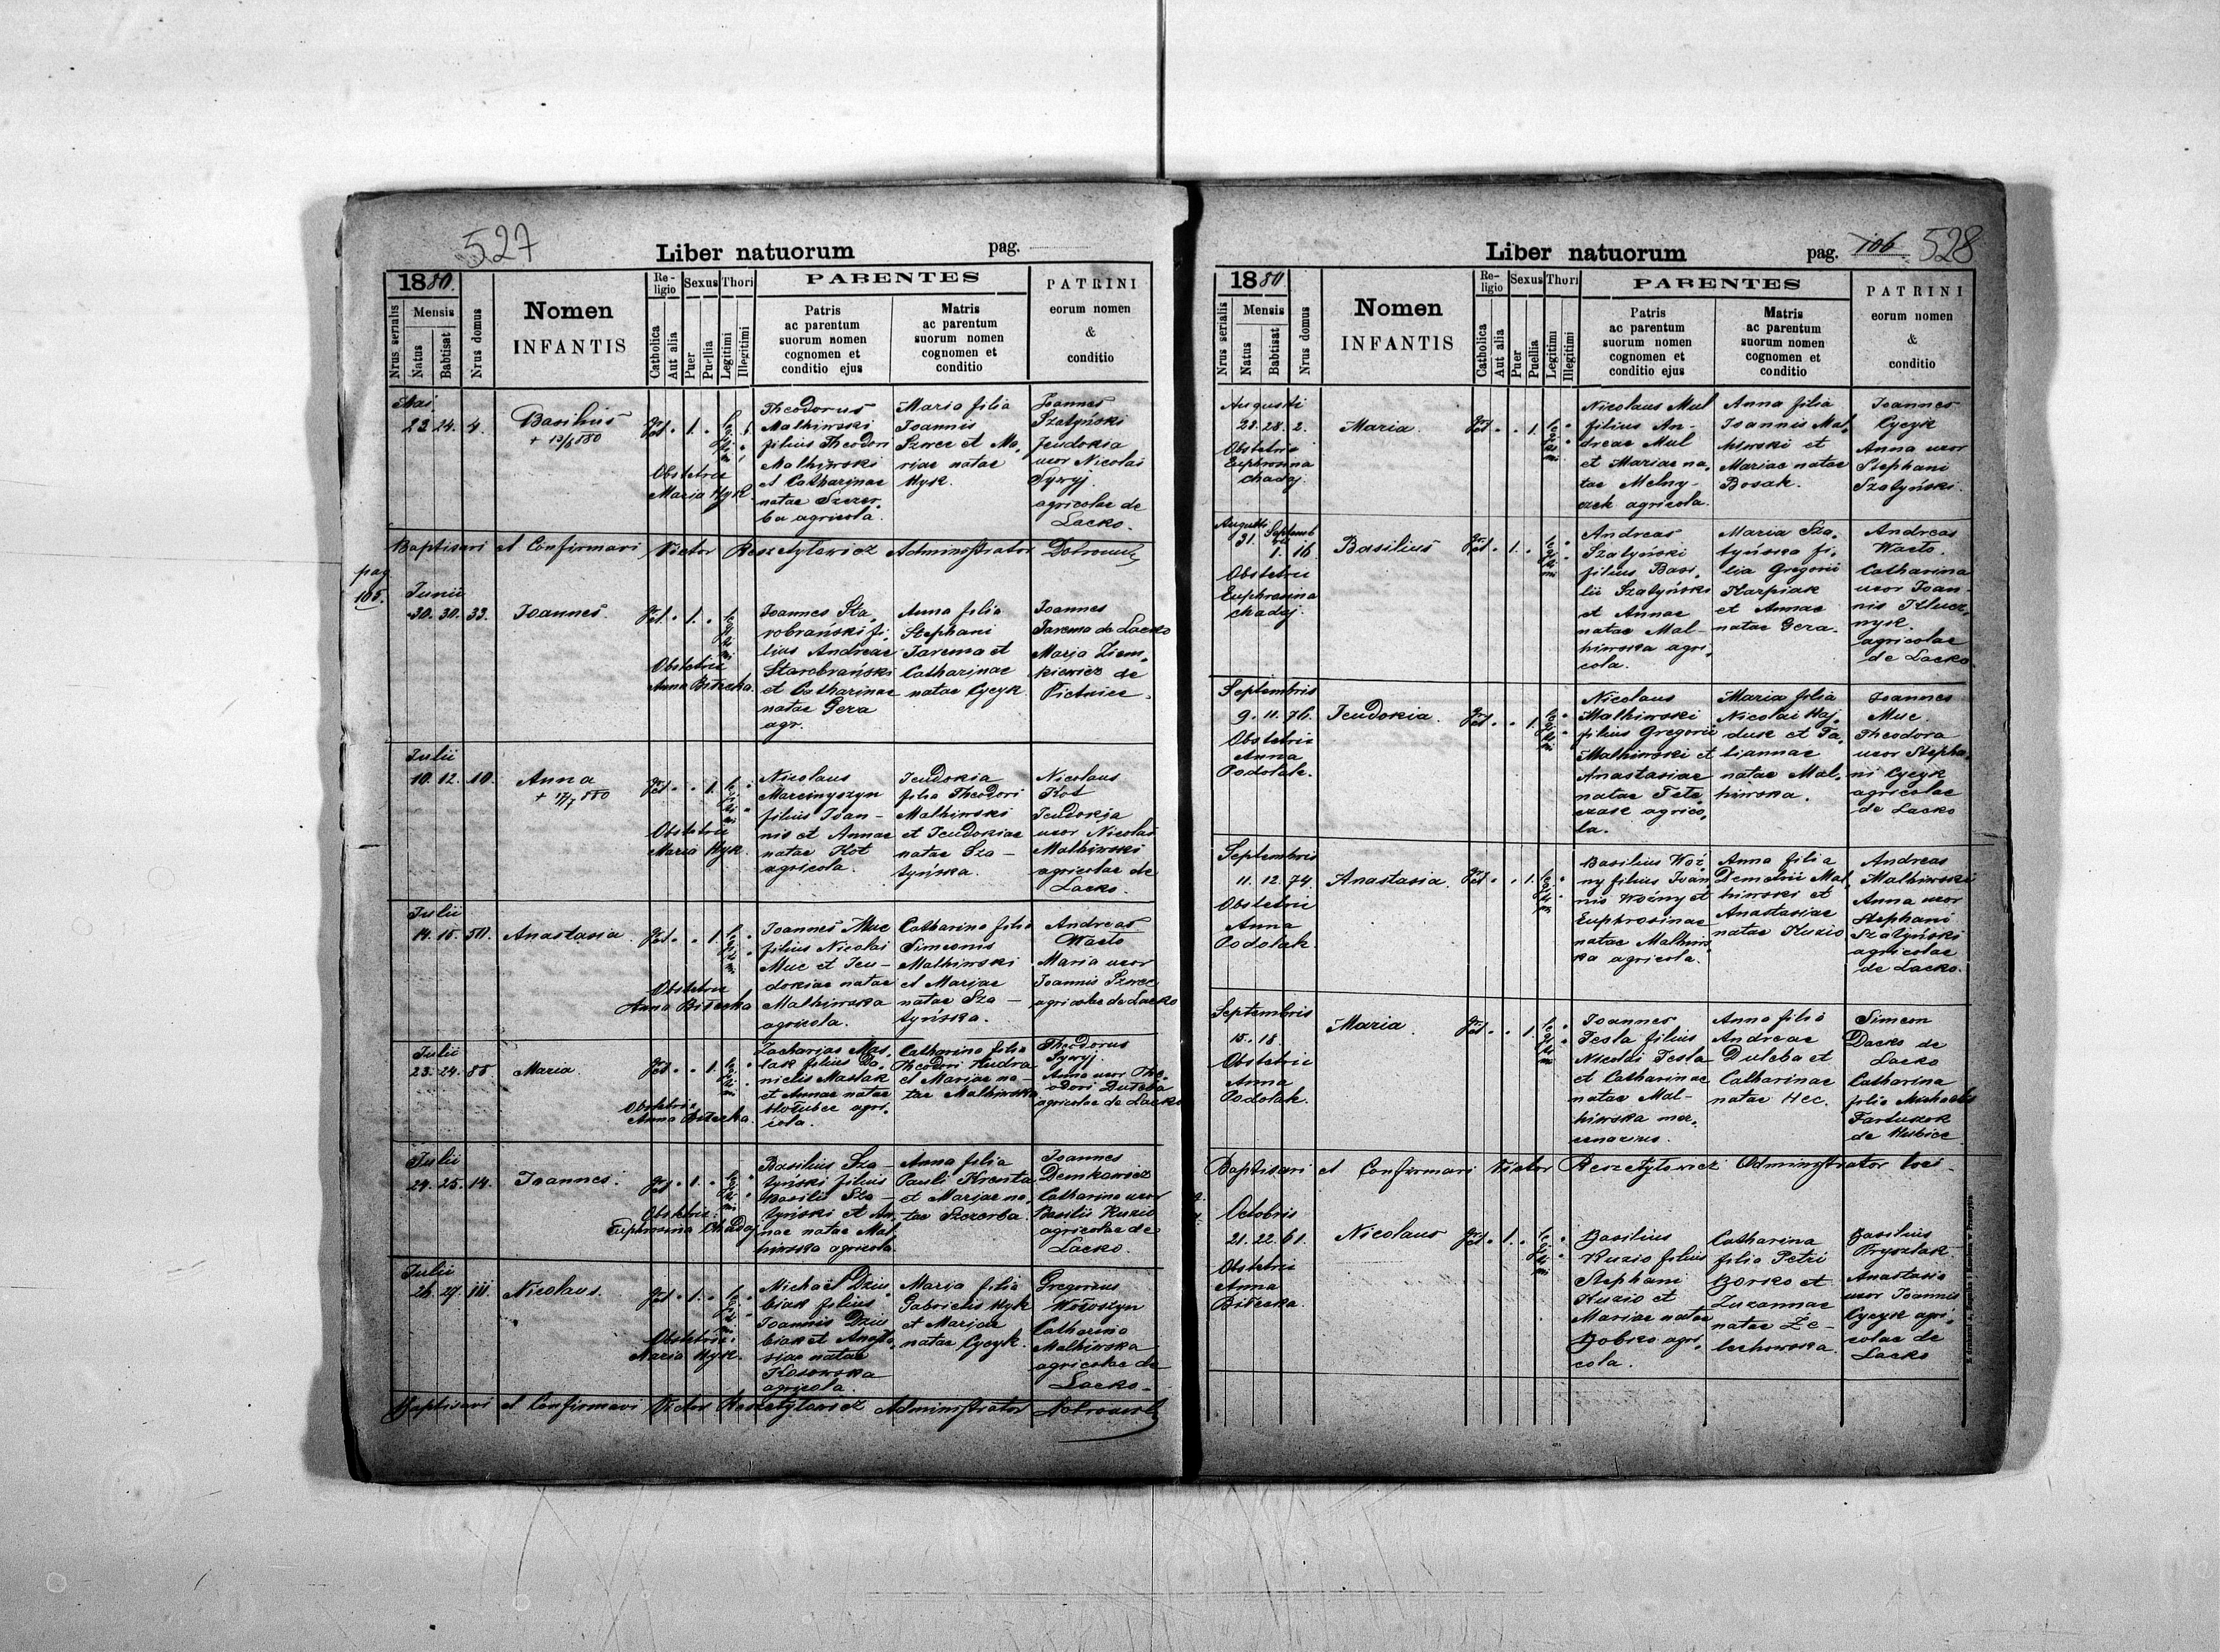 527
Liber natuorum
pag.
1880.
Nrus serialis
Mensis
Natus
Babtisat
Nrus domus
Nomen
INFANTIS
Re-
ligio
Catholica
Aut alia
Sexus
Puer
Puella
Thori
Legitimi
Illegitimi
PARENTES
Patris
ac parentum
suorum nomen
cognomen et
conditio ejus
Matris
ac parentum
suorum nomen
cognomen et
conditio
PATRINI
eorum nomen
&
conditio
Mai
23. 24. 4.
Basilius
+ 13/6 880
1.
Obstetrix
Maria Hyk.
Theodorus
Malhiwski
filius Theodori
Malhiwski
et Catharinae
natae Szczer-
ba agricola.
Maria filia
Joannis
Szwec et Ma-
riae natae
Hyk.
Joannes
Szatyński
Jeudokia
uxor Nicolai
Sywyj.
agricolae de
Lacko.
Baptisavi et Confirmavi Victor Reszetyłowicz Administrator
pag
105.
Junii
30. 30. 33.
Joannes.
1.
Obstetrix
Anna Biłecka.
Joannes Sta-
robrański fi-
lius Andreae
Starobrański
et Catharinae
natae Gera
agr.
Anna filia
Stephani
Jarema et
Catharinae
natae Cycyk
Joannes
Jarema de Lacko
Maria Ziem-
kiewicz de
Pietnice.
Julii
10. 12. 10.
Anna
+ 17/7 880
1.
Obstetrix
Maria Hyk.
Nicolaus
Marcinyszyn
filius Joan-
nis et Annae
natae Kot
agricola.
Jeudokia
filia Theodori
Malhiwski
et Jeudokiae
natae Sza-
tyńska.
Nicolaus
Kot
Jeudokia
uxor Nicolai
Malhiwski
agricolae de
Lacko.
Julii
14. 15. 50.
Anastasia.
1.
Obstetrix
Anna Biłecka
Joannes Muc
filius Nicolai
Muc et Jeu-
dokiae natae
Malhiwska
agricola.
Catharina filia
Simeonis
Malhiwski
et Mariae
natae Sza-
tyńska.
Andreas
Wasło
Maria uxor
Joannis Szwec
agricolae de Lacko
Julii
23. 24. 85.
Maria.
1.
Obstetrix
Anna Biłecka.
Zacharias Mas-
lak filius Da-
nielis Maslak
et Annae natae
Hołubec agri-
cola.
Catharina filia
Theodori Kudra
et Mariae na-
tae Malhiwska
Theodorus
Sywyj.
Anna uxor The-
odori Duleba
agricolae de Lacko
Julii
24. 25. 14.
Joannes.
1.
Obstetrix
Euphrosina Chadaj
Basilius Sza-
tyński filius
Basilii Sza-
tyński et An-
nae natae Mal-
hiwska agricola.
Anna filia
Pauli Krenta
et Mariae na-
tae Szczerba.
Joannes
Demkowicz
Catharina uxor
Basilii Kuzio
agricolae de
Lacko.
Julii
26. 27. 111.
Nicolaus.
1.
Obstetrix
Maria Hyk.
Michael Dziu-
biak filius
Joannis Dziu-
biak et Anasta-
siae natae
Kosowska
agricola.
Maria filia
Gabrielis Hyk
et Mariae
natae Cycyk.
Gregorius
Wołoszyn
Catharina
Malhiwska
agricolae de
Lacko.
Baptisavi et Confirmavi Victor Reszetyłowicz Administrator
Liber natuorum
pag. 106 528
1880
Nrus serialis
Mensis
Natus
Babtisat
Nrus domus
Nomen
INFANTIS
Re-
ligio
Catholica
Aut alia
Sexus
Puer
Puella
Thori
Legitimi
Illegitimi
PARENTES
Patris
ac parentum
suorum nomen
cognomen et
conditio ejus
Matris
ac parentum
suorum nomen
cognomen et
conditio
PATRINI
eorum nomen
&
conditio
Augusti
28. 28. 2.
Obstetrix
Euphrosina
Chadaj.
Maria.
1.
Nicolaus Mul
filius An-
dreae Mul
et Mariae na-
tae Melny-
czek agricola.
Anna filia
Joannis Mal-
hiwski et
Mariae natae
Bosak.
Joannes
Cycyk
Anna uxor
Stephani
Szatyński.
Augusti Septemb
31. 1. 16.
Obstetrix
Euphrosina
Chadaj.
Basilius
1.
Andreas
Szatyński
filius Basi-
lii Szatyński
et Annae
natae Mal-
hiwska agri-
cola.
Maria Sza-
tyńska fi-
lia Gregorii
Karpiak
et Annae
natae Gera.
Andreas
Wasło.
Catharina
uxor Joan-
nis Klucz-
nyk.
agricolae
de Lacko
Septembris
9. 11. 76.
Obstetrix
Anna
Podolak.
Jeudokia.
1.
Nicolaus
Malhiwski
filius Gregorii
Malhiwski et
Anastasiae
natae
agrico-
la.
Maria filia
Nicolai Haj-
duk et Ta-
tiannae
natae Mal-
hiwska.
Joannes
Muc.
Theodora
uxor Stepha-
ni Cycyk
agricolae
de Lacko
Septembris
11. 12. 74.
Obstetrix
Anna
Podolak.
Anastasia.
1.
Basilius Woź-
ny filius Joan-
nis Woźny et
Euphrosinae
natae Malhiws-
ka agricola.
Anna filia
Demetrii Mal-
hiwski et
Anastasiae
natae Kuzio
Andreas
Malhiwski
Anna uxor
Stephani
Szatyński
agricolae
de Lacko.
Septembris
15. 18.
Obstetrix
Anna
Podolak.
Maria.
1.
Joannes
Tesla filius
Nicolai Tesla
et Catharinae
natae Mal-
hiwska mer-
cenarius.
Anna filia
Andreae
Duleba et
Catharinae
natae Hec.
Simeon
Dacko de
Lacko
Catharina
filia Michaelis
de Hubice
Baptisavi et Confirmavi Victor Reszetyłowicz Administrator loci
Octobris
21. 22. 61.
Obstetrix
Anna
Biłecka.
Nicolaus
1.
Basilius
Kuzio filius
Stephani
Kuzio et
Mariae natae
Bobko agri-
cola.
Catharina
filia Petri
Borsko et
Zuzannae
natae Że-
lechowska.
Basilius
Prysztak.
Anastasia
uxor Joannis
Cycyk agri-
colae de
Lacko